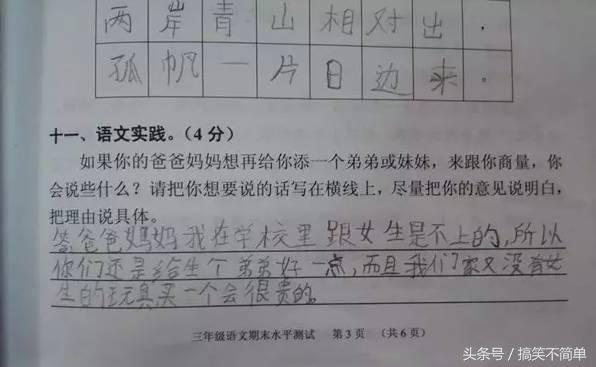 两岸青山相对出，
孤帆一片日边来。
十一、语文实践。（4分）
如果你的爸爸妈妈想再给你添一个弟弟或妹妹，来跟你商量，你
会说些什么？请把你想要说的话写在横线上，尽量把你的意见说明白，
把理由说具体。
答爸爸妈妈我在学校里跟女生是不上的，所以
你们还是给生个弟弟好一点，而且我们家又没有女
生的玩具买一个会很贵的。
三年级语文期末水平测试 第3页 （共6页）
头条号／搞笑不简单